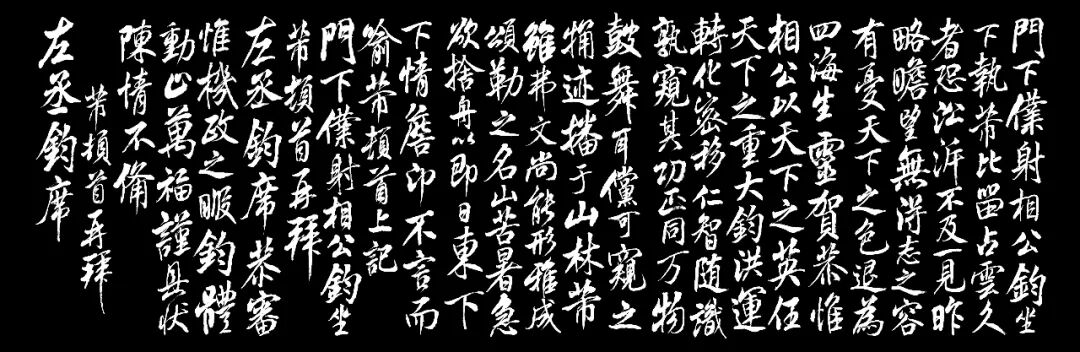 門下僕射相公鈞坐
下執芾比留占雲久
者恐沿泝不及一見昨
略瞻望無淂志之容
有憂天下之色退為
四海生靈賀恭惟
相公以天下之英任
天下之重大鈞洪運
轉化密移仁智随識
孰窺其功正同万物
鼓舞耳儻可窺之
捕迹播于山林芾
雖弗文尚能形雅成
頌勒之名山苦暑急
欲捨舟以即日東下
下情詹卬不言而
喻芾頓首上記
門下僕射相公鈞坐
芾頓首再拜
左丞鈞席恭審
惟機政之暇鈞體
動止萬福謹具状
陳情不備
芾頓首再拜
左丞鈞席